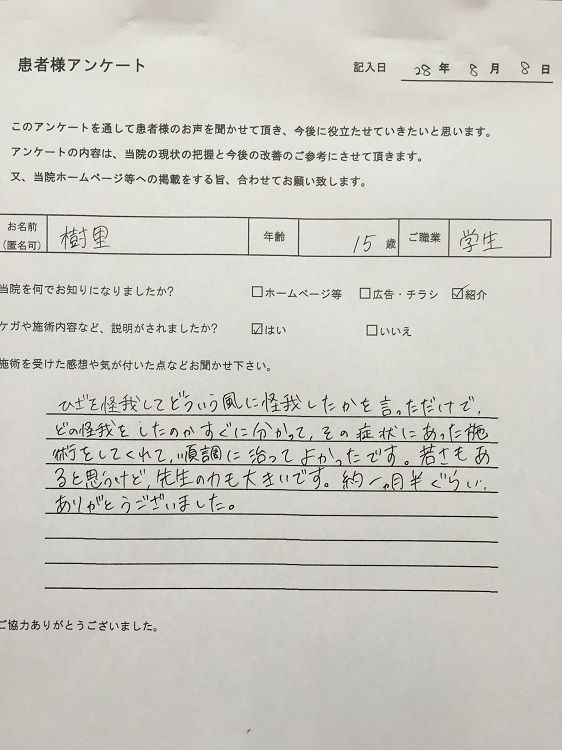 患者様アンケート
記入日 28年 8月 8日
このアンケートを通して患者様のお声を聞かせて頂き、今後に役立たせていきたいと思います。
アンケートの内容は、当院の現状の把握と今後の改善のご参考にさせて頂きます。
又、当院ホームページ等への掲載をする旨、合わせてお願い致します。
お名前
(匿名可)
樹里 年齢 15歳 ご職業 学生
当院を何でお知りになりましたか? □ホームページ等 □広告・チラシ ☑紹介
ケガや施術内容など、説明がされましたか? ☑はい □いいえ
施術を受けた感想や気が付いた点などお聞かせ下さい。
ひざを怪我してどういう風に怪我したかを言っただけで、
どの怪我をしたのかすぐに分かって、その症状にあった施
術をしてくれて、順調に治ってよかったです。若さもあ
ると思うけど、先生の力も大きいです。約一ヶ月半ぐらい、
ありがとうございました。
ご協力ありがとうございました。